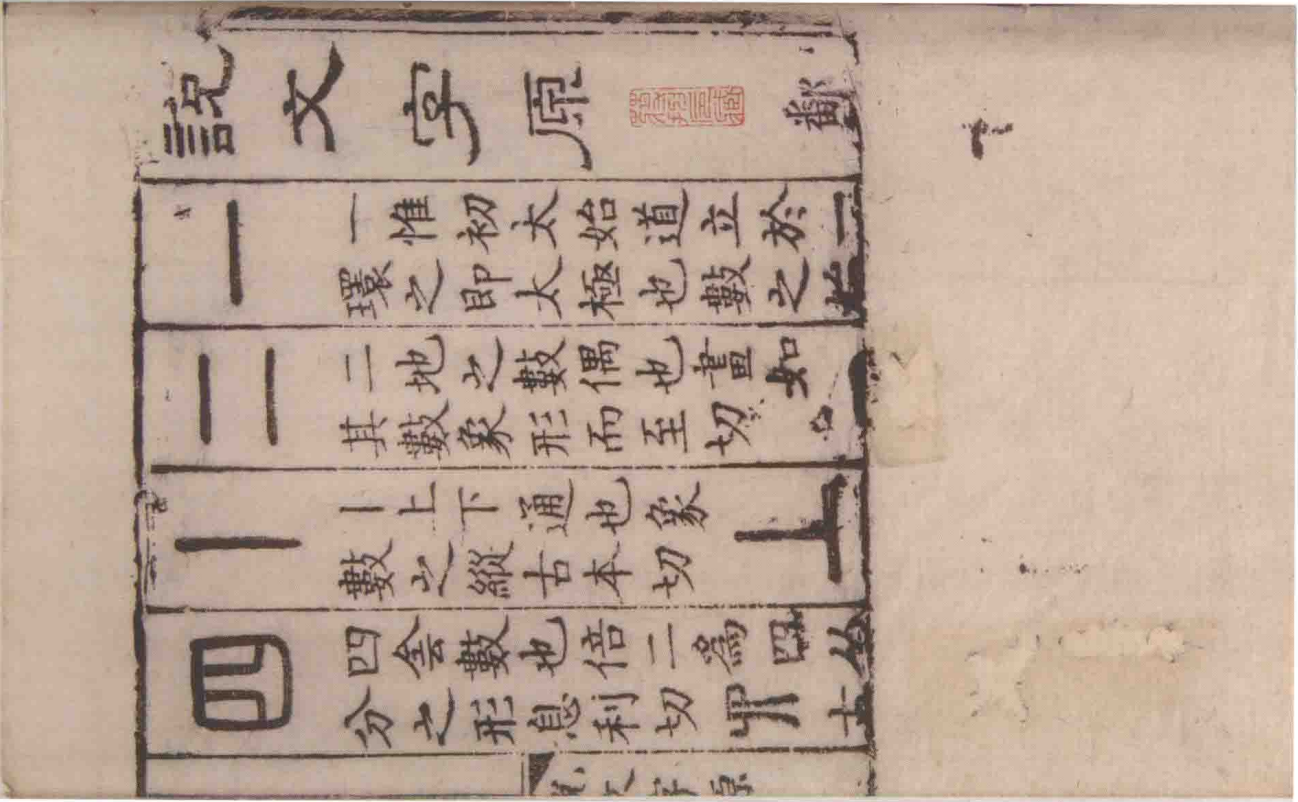 說文字原 鄱
一
一惟初太始道立於一
環之即太極也數之始
二
二地之數偶也畫如
其數象形而至切
丨
丨上下通也象
數之縱古本切
上
四
四侌數也倍二為四从
分之形息利切